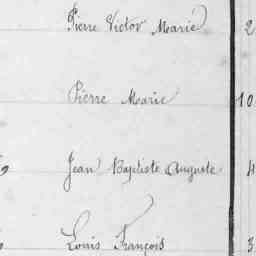 Pierre Victor Marie 2
Pierre Marie 10
Jean Baptiste Auguste 4
Louis François 3